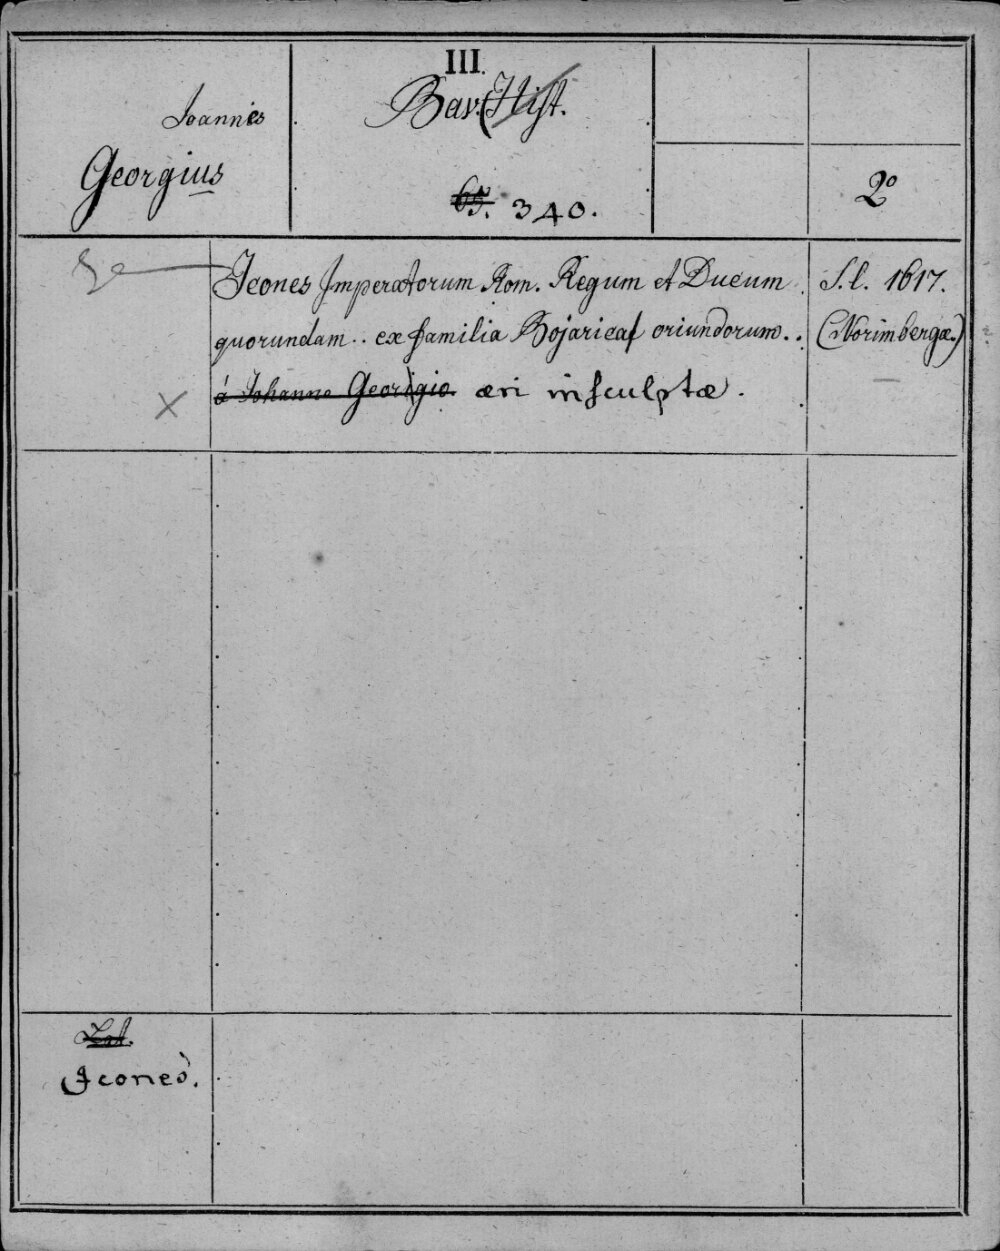 III.
Joannes
Bav. (Hist.
Georgius
2°
65. 340.
Icones Imperatorum Rom. Regum et Ducum
S. l. 1617.
quorundam .. ex familia Bojarica oriundorum..
(Norimbergæ.)
á Johanne Georgio æri insculptæ.
Lat.
Icones.